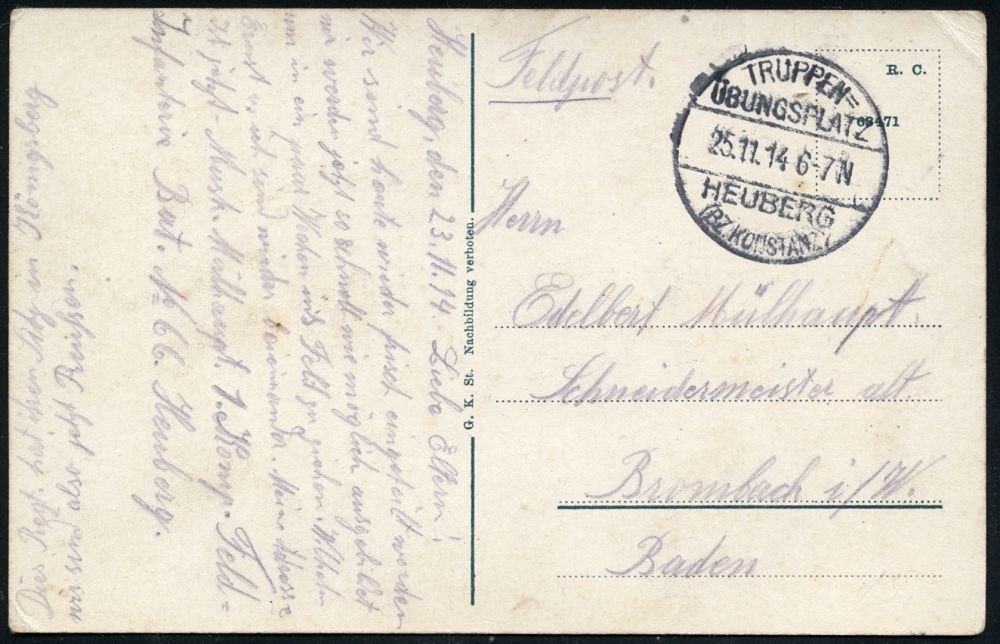 Feldpost.
R. C.
TRUPPEN=
ÜBUNGSPLATZ
25.11.14 6-7N
HEUBERG
(BZ. KONSTANZ)
68471
Herrn
Edelbert Mülhaupt.
Schneidermeister alt.
Brombach i/W.
Baden
G. K. St. Nachbildung verboten.
Heuberg, den 23.11.14. Liebe Eltern!
Wir sind heute wieder frisch eingeteilt worden
wir werden jetzt so schnell wie möglich ausgebildet
um in ein paar Wochen ins Feld zu ziehen. Wilhelm
Ernst u. ich sind wieder beieinander. Meine Adresse
ist jetzt Musk. Mülhaupt. 1. Komp. Feld=
Infanterie Bat. Heuberg.
Dies Regt. hat seinen in Königsberg
wir sind also jetzt Preußen.